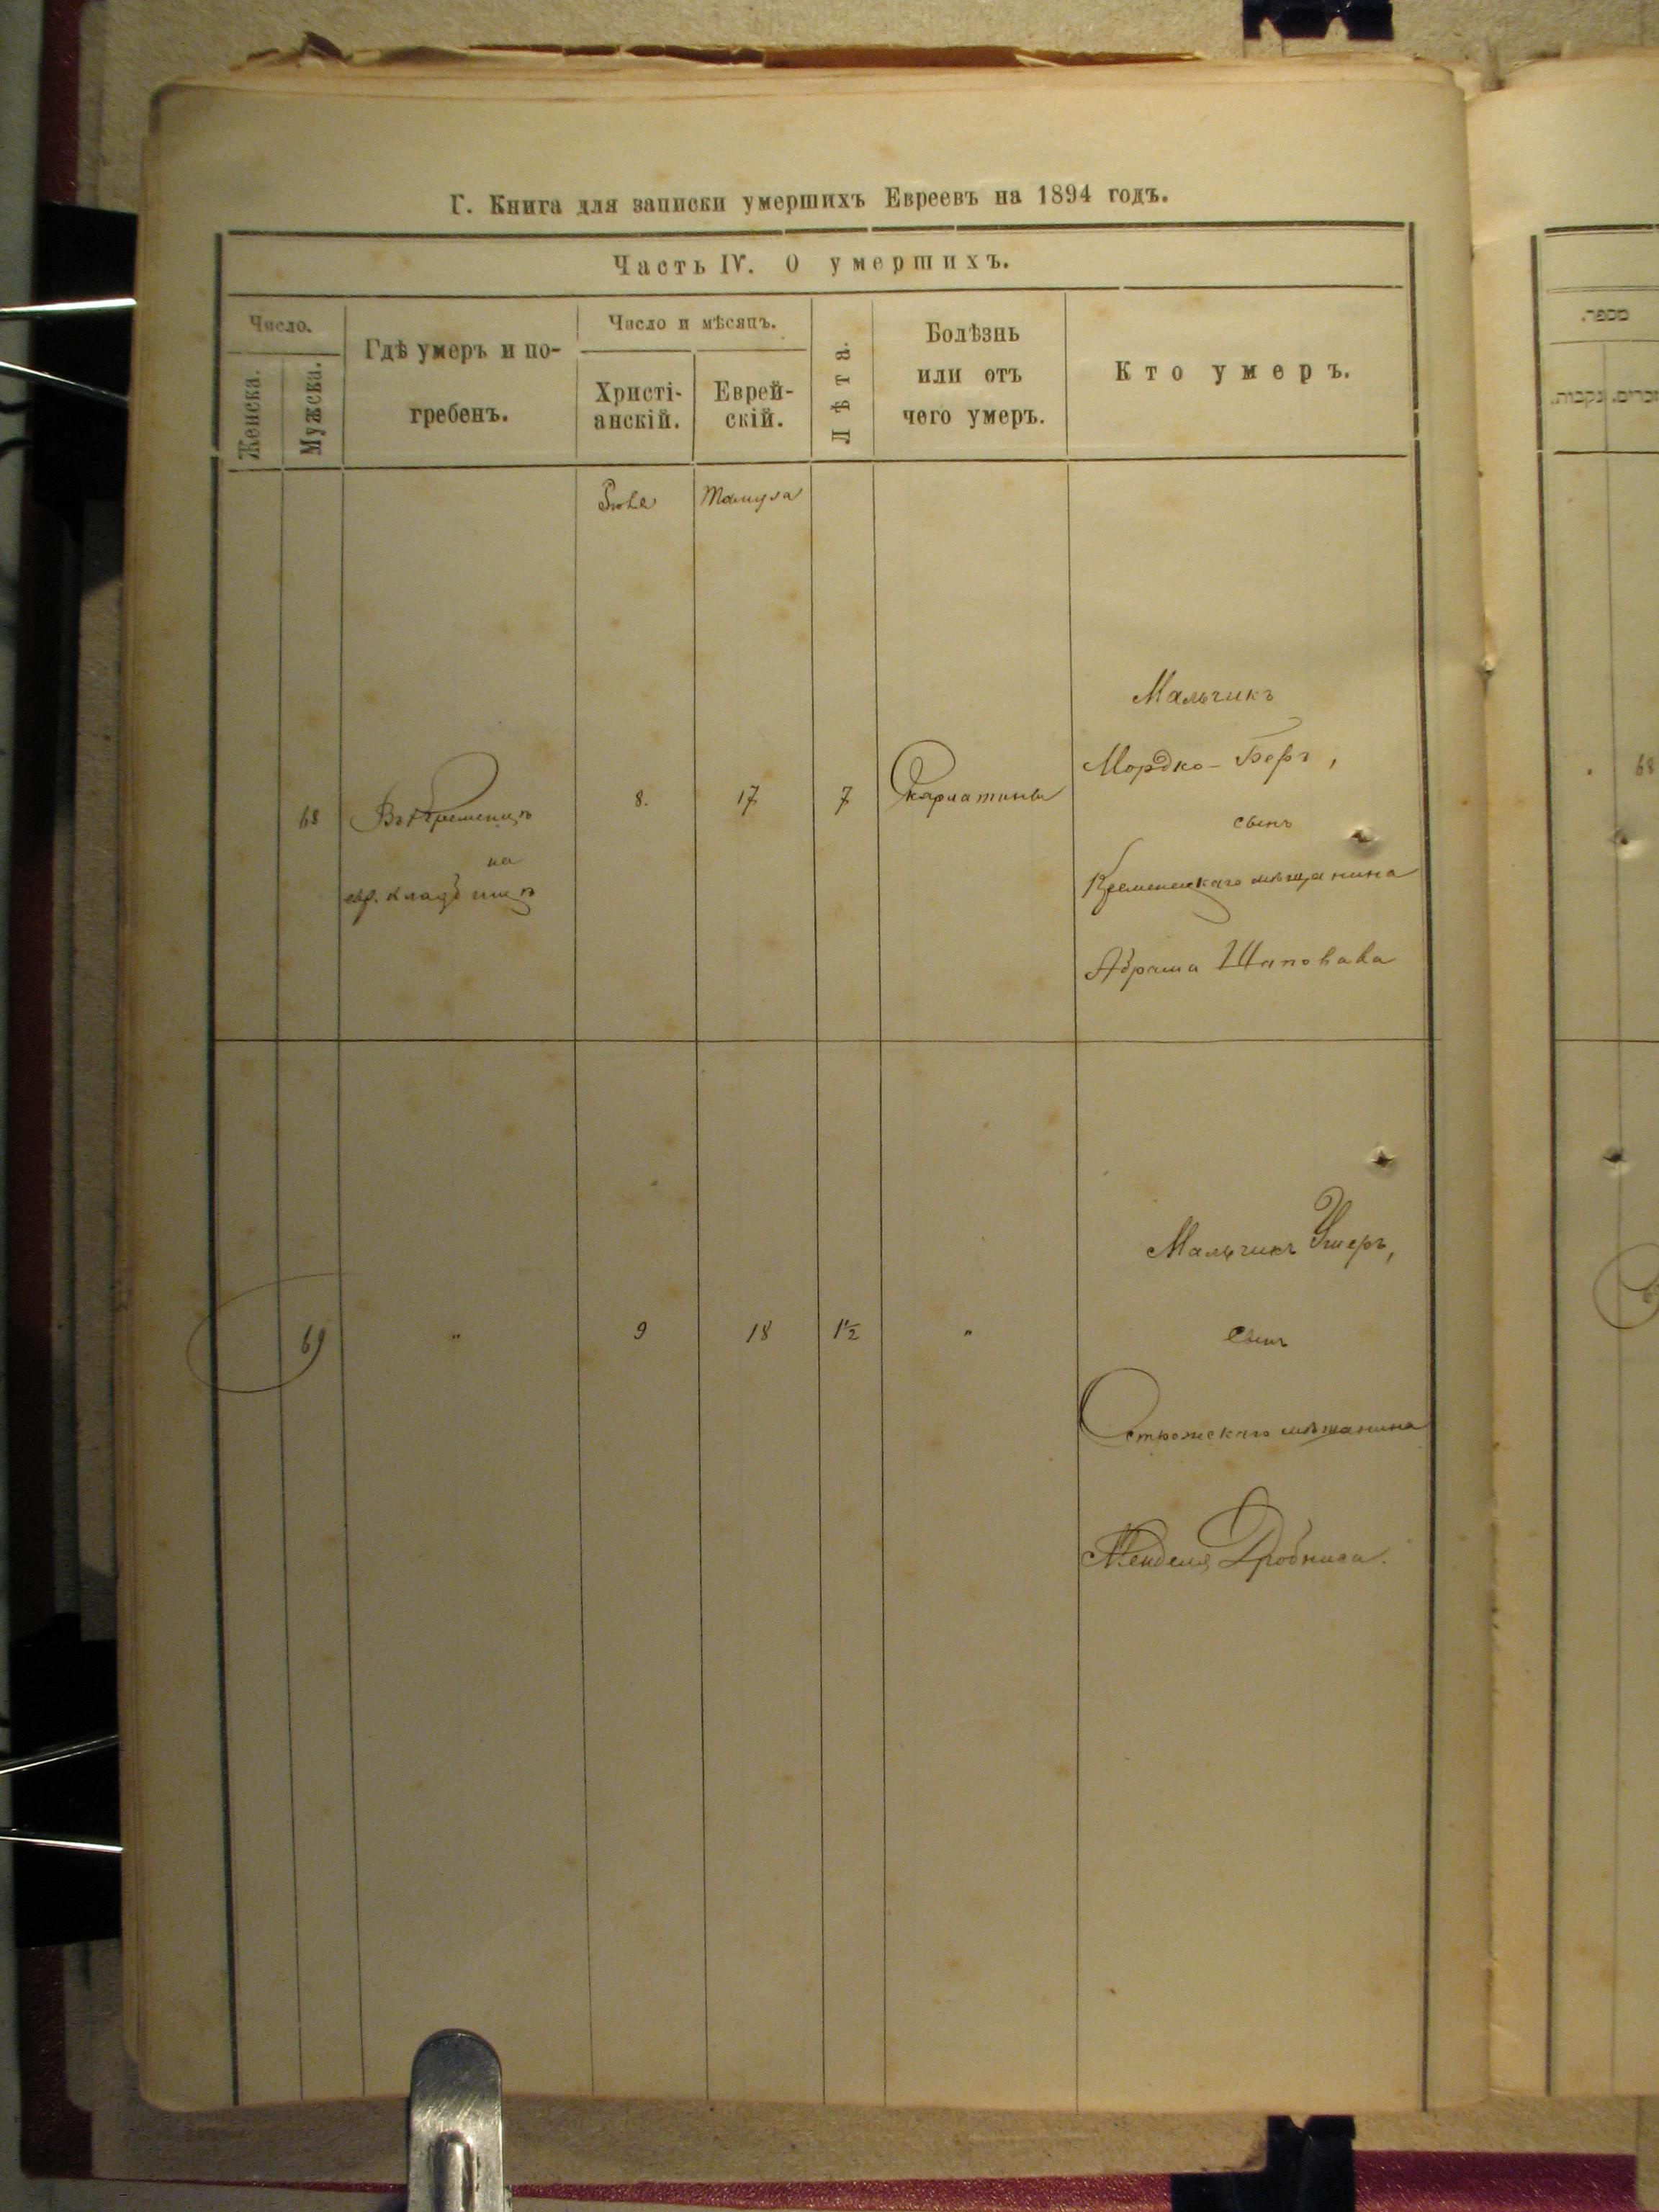 Г. Книга для записки умершихъ Евреевъ на 1894 годъ.
Часть IV. О умершихъ.
Число.
Женска.
Мужска.
Гдѣ умеръ и по-
гребенъ.
Число и мѣсяцъ.
Христі-
анскій.
Еврей-
скій.
Лѣта.
Болѣзнь
или отъ
чего умеръ.
Кто умеръ.
Тамуза
68
Въ Кременцѣ
на
евр. кладбищѣ
8.
17
7
Скарлатины
Мальчикъ
Мордко-Беръ,
сынъ
Кременецкаго мѣщанина
Абрама Шаповала
69
"
9
18
1½
"
Мальчикъ Ушеръ,
сынъ
Острожскаго мѣщанина
Менделя
מספר.
זכרים.
נקבות.
68